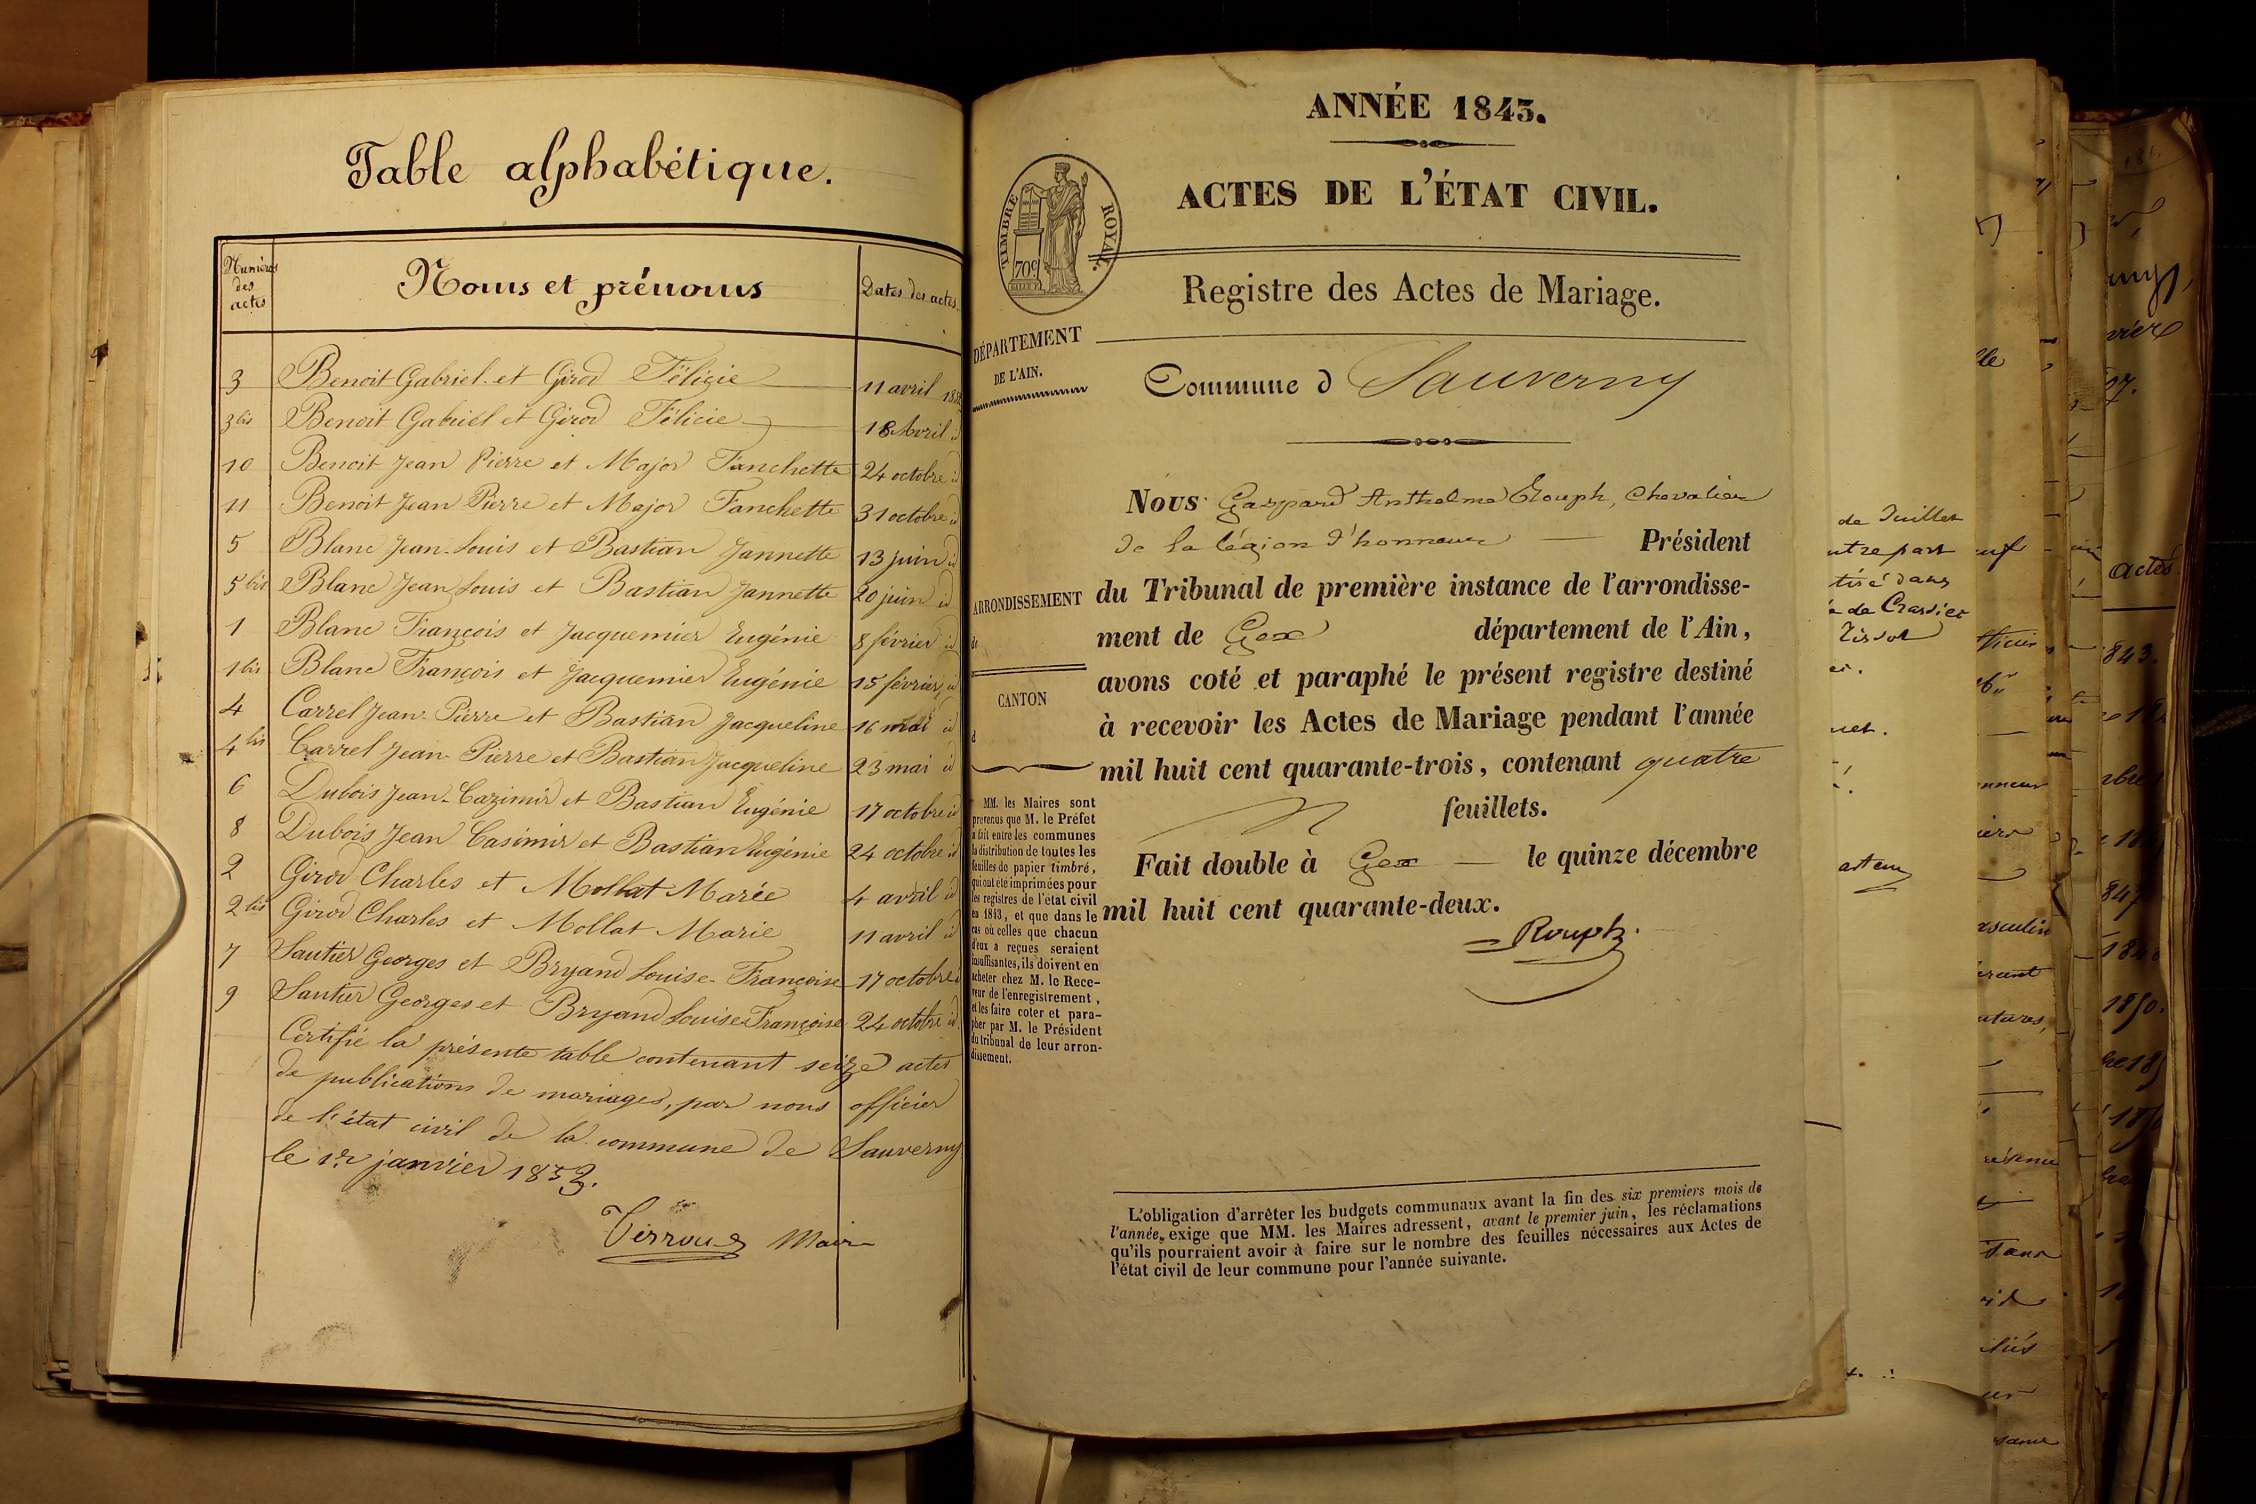 Table alphabétique.
Numéros des actes
Noms et prénoms
Dates des actes.
3 Benoit Gabriel et Girod Féligie 11 avril 1852
3 bis Benoit Gabriel et Girod Félicie 18 Avril id
10 Benoit Jean Pierre et Major Fanchette 24 octobre id
11 Benoit Jean Pierre et Major Fanchette 31 octobre id
5 Blanc Jean-Louis et Bastian Jannette 13 juin id
5 bis Blanc Jean Louis et Bastian Jannette 20 juin id
1 Blanc François et Jacquemier Eugénie 8 février id
1 bis Blanc François et Jacquemier Eugénie 15 février id
4 Carrel Jean-Pierre et Bastian Jacqueline 16 mai id
4 bis Carrel Jean-Pierre et Bastian Jacqueline 23 mai id
6 Dubois Jean-Cazimir et Bastian Eugénie 17 octobre id
8 Dubois Jean Casimir et Bastian Eugénie 24 octobre id
2 Girod Charles et Mollat Marie 4 avril id
2 bis Girod Charles et Mollat Marie 11 avril id
7 Sautier Georges et Bryand Louise-Françoise 17 octobre id
9 Sautier Georges et Bryand Louise Françoise 24 octobre id
Certifié la présente table contenant seize actes
de publications de mariages, par nous officier
de l'état civil de la commune de Sauverny
le 1er janvier 1853.
Maire
ANNÉE 1843.
ACTES DE L'ÉTAT CIVIL.
TIMBRE ROYAL.
70c
Registre des Actes de Mariage.
DÉPARTEMENT
DE L'AIN.
Commune d Sauverny
Nous Gaspard Anthelme Rouph, Chevalier
de la légion d'honneur — Président
ARRONDISSEMENT
de
du Tribunal de première instance de l'arrondisse-
ment de Gex département de l'Ain,
avons coté et paraphé le présent registre destiné
CANTON
d
à recevoir les Actes de Mariage pendant l'année
mil huit cent quarante-trois, contenant quatre
feuillets.
Fait double à Gex — le quinze décembre
mil huit cent quarante-deux.
Rouph.
MM. les Maires sont
prévenus que M. le Préfet
a fait entre les communes
la distribution de toutes les
feuilles de papier timbré,
qui ont été imprimées pour
les registres de l'état civil
en 1843, et que dans le
cas où celles que chacun
d'eux a reçues seraient
insuffisantes, ils doivent en
acheter chez M. le Rece-
veur de l'enregistrement,
et les faire coter et para-
pher par M. le Président
du tribunal de leur arron-
dissement.
L'obligation d'arrêter les budgets communaux avant la fin des six premiers mois de
l'année, exige que MM. les Maires adressent, avant le premier juin, les réclamations
qu'ils pourraient avoir à faire sur le nombre des feuilles nécessaires aux Actes de
l'état civil de leur commune pour l'année suivante.
de Juillet
de Crassier
Tissot
actes
1850.